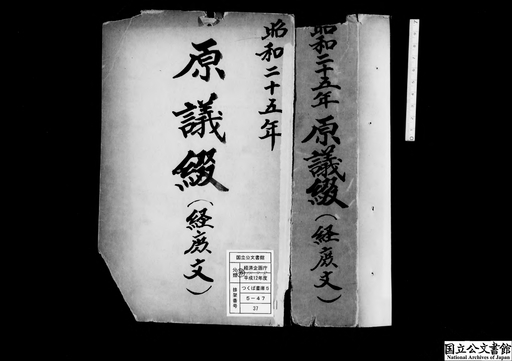 昭和二十五年
原議綴
(経庶文)
昭和二十五年
原議綴
(経庶文)
国立公文書館
分類
経済企画庁
平成12年度
つくば書庫5
排架番号
5-47
37
国立公文書館
National Archives of Japan